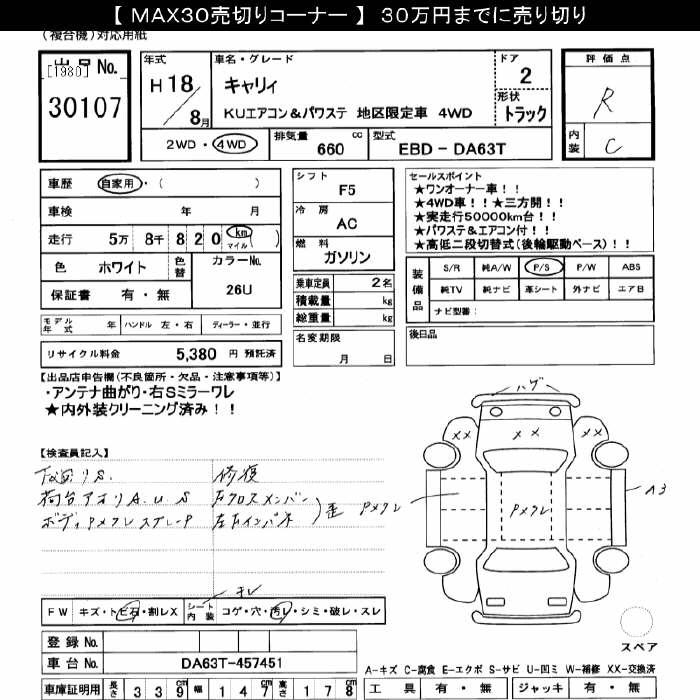 【 MAX30売切りコーナー 】 30万円までに売り切り
(複合機)対応用紙
出品No.
[1980]
30107
年式
H18/8月
車名・グレード
キャリィ
KUエアコン&パワステ 地区限定車 4WD
ドア
2
形状
トラック
評価点
R
内装
C
2WD・4WD
排気量
660 cc
型式
EBD - DA63T
車歴 自家用・( )
車検 年 月
走行 5万 8千 8 2 0 km マイル ( )
色 ホワイト 色替
カラーNo.
26U
保証書 有・無
シフト
F5
冷房
AC
燃料
ガソリン
乗車定員 2名
積載量 kg
総重量 kg
セールスポイント
★ワンオーナー車!!
★4WD車!!★三方開!!
★実走行50000km台!!
★パワステ&エアコン付!!
★高低二段切替式(後輪駆動ベース)!!
装備品
S/R 純A/W P/S P/W ABS
純TV 純ナビ 革シート 外ナビ エアB
ナビ型番:
モデル年式 年 ハンドル 左・右 ディーラー・並行
リサイクル料金 5,380 円 預託済
名変期限
月 日
後日品
【出品店申告欄(不良箇所・欠品・注意事項等)】
・アンテナ曲がり・右Sミラーワレ
★内外装クリーニング済み!!
【検査員記入】
下廻りS. 修復
荷台アオリA.U.S 左クロスメンバー
ボディPメクレスプレーP 左右インパネ
歪
ハゲ
××
××
××
Pメクレ
Pメクレ
A3
コレ
FW キズ・トビ石・割レX シート内装 コゲ・穴・汚レ・シミ・破レ・スレ
登録No.
車台No. DA63T-457451
車庫証明用 長さ 3 3 9 幅 1 4 7 高さ 1 7 8
スペア
A-キズ C-腐食 E-エクボ S-サビ U-凹ミ W-補修 XX-交換済
工具 有・無 ジャッキ 有・無